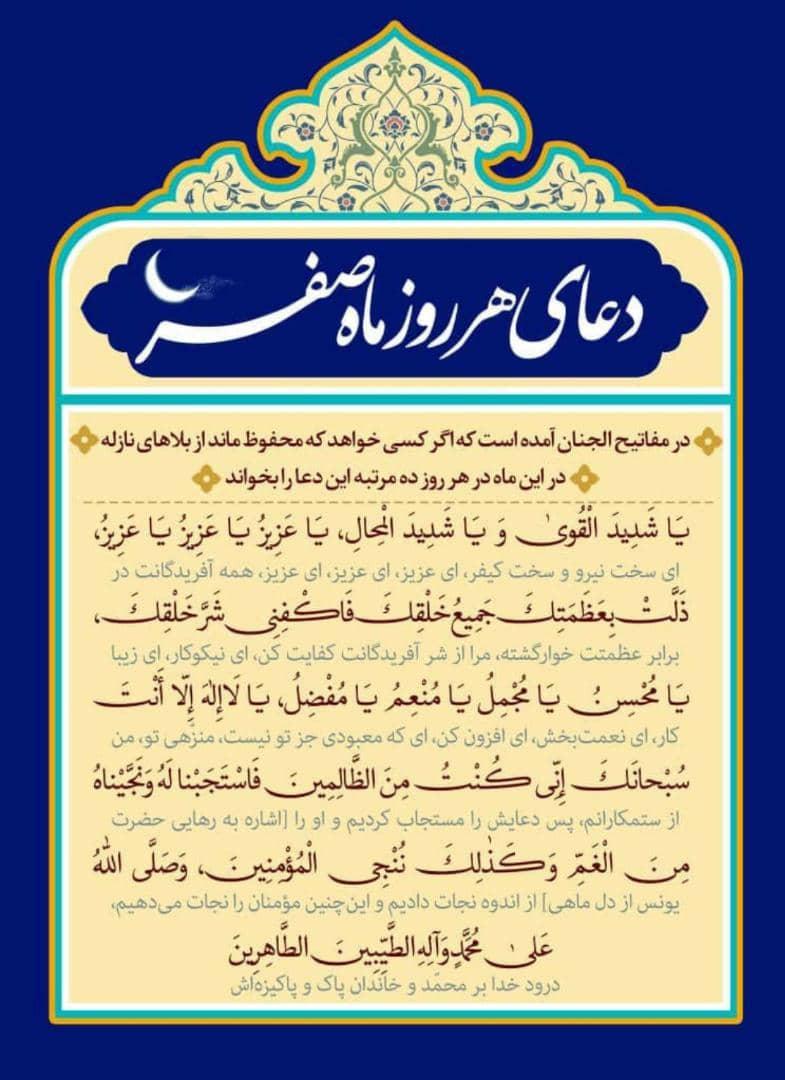 دعای هر روز ماه صفر
در مفاتیح الجنان آمده است که اگر کسی خواهد که محفوظ ماند از بلاهای نازله
در این ماه در هر روز ده مرتبه این دعا را بخواند
يَا شَدِيدَ الْقُوىٰ وَ يَا شَدِيدَ الْمِحالِ، يَا عَزِيزُ يَا عَزِيزُ يَا عَزِيزُ،
ای سخت نیرو و سخت کیفر، ای عزیز، ای عزیز، ای عزیز، همه آفریدگانت در
ذَلَّتْ بِعَظَمَتِكَ جَمِيعُ خَلْقِكَ فَاكْفِنِى شَرَّ خَلْقِكَ،
برابر عظمتت خوارگشته، مرا از شر آفریدگانت کفایت کن، ای نیکوکار، ای زیبا
يَا مُحْسِنُ يَا مُجْمِلُ يَا مُنْعِمُ يَا مُفْضِلُ، يَا لَاإِلٰهَ إِلّا أَنْتَ
کار، ای نعمت‌بخش، ای افزون کن، ای که معبودی جز تو نیست، منزّهی تو، من
سُبْحانَكَ إِنِّى كُنْتُ مِنَ الظَّالِمِينَ فَاسْتَجَبْنا لَهُ وَنَجَّيْناهُ
از ستمکارانم، پس دعایش را مستجاب کردیم و او را [اشاره به رهایی حضرت
مِنَ الْغَمِّ وَكَذٰلِكَ نُنْجِى الْمُؤْمِنِينَ، وَصَلَّى اللّٰهُ
یونس از دل ماهی] از اندوه نجات دادیم و این‌چنین مؤمنان را نجات می‌دهیم،
عَلىٰ مُحَمَّدٍ وَآلِهِ الطَّيِّبِينَ الطَّاهِرِينَ
درود خدا بر محمّد و خاندان پاک و پاکیزه‌اش